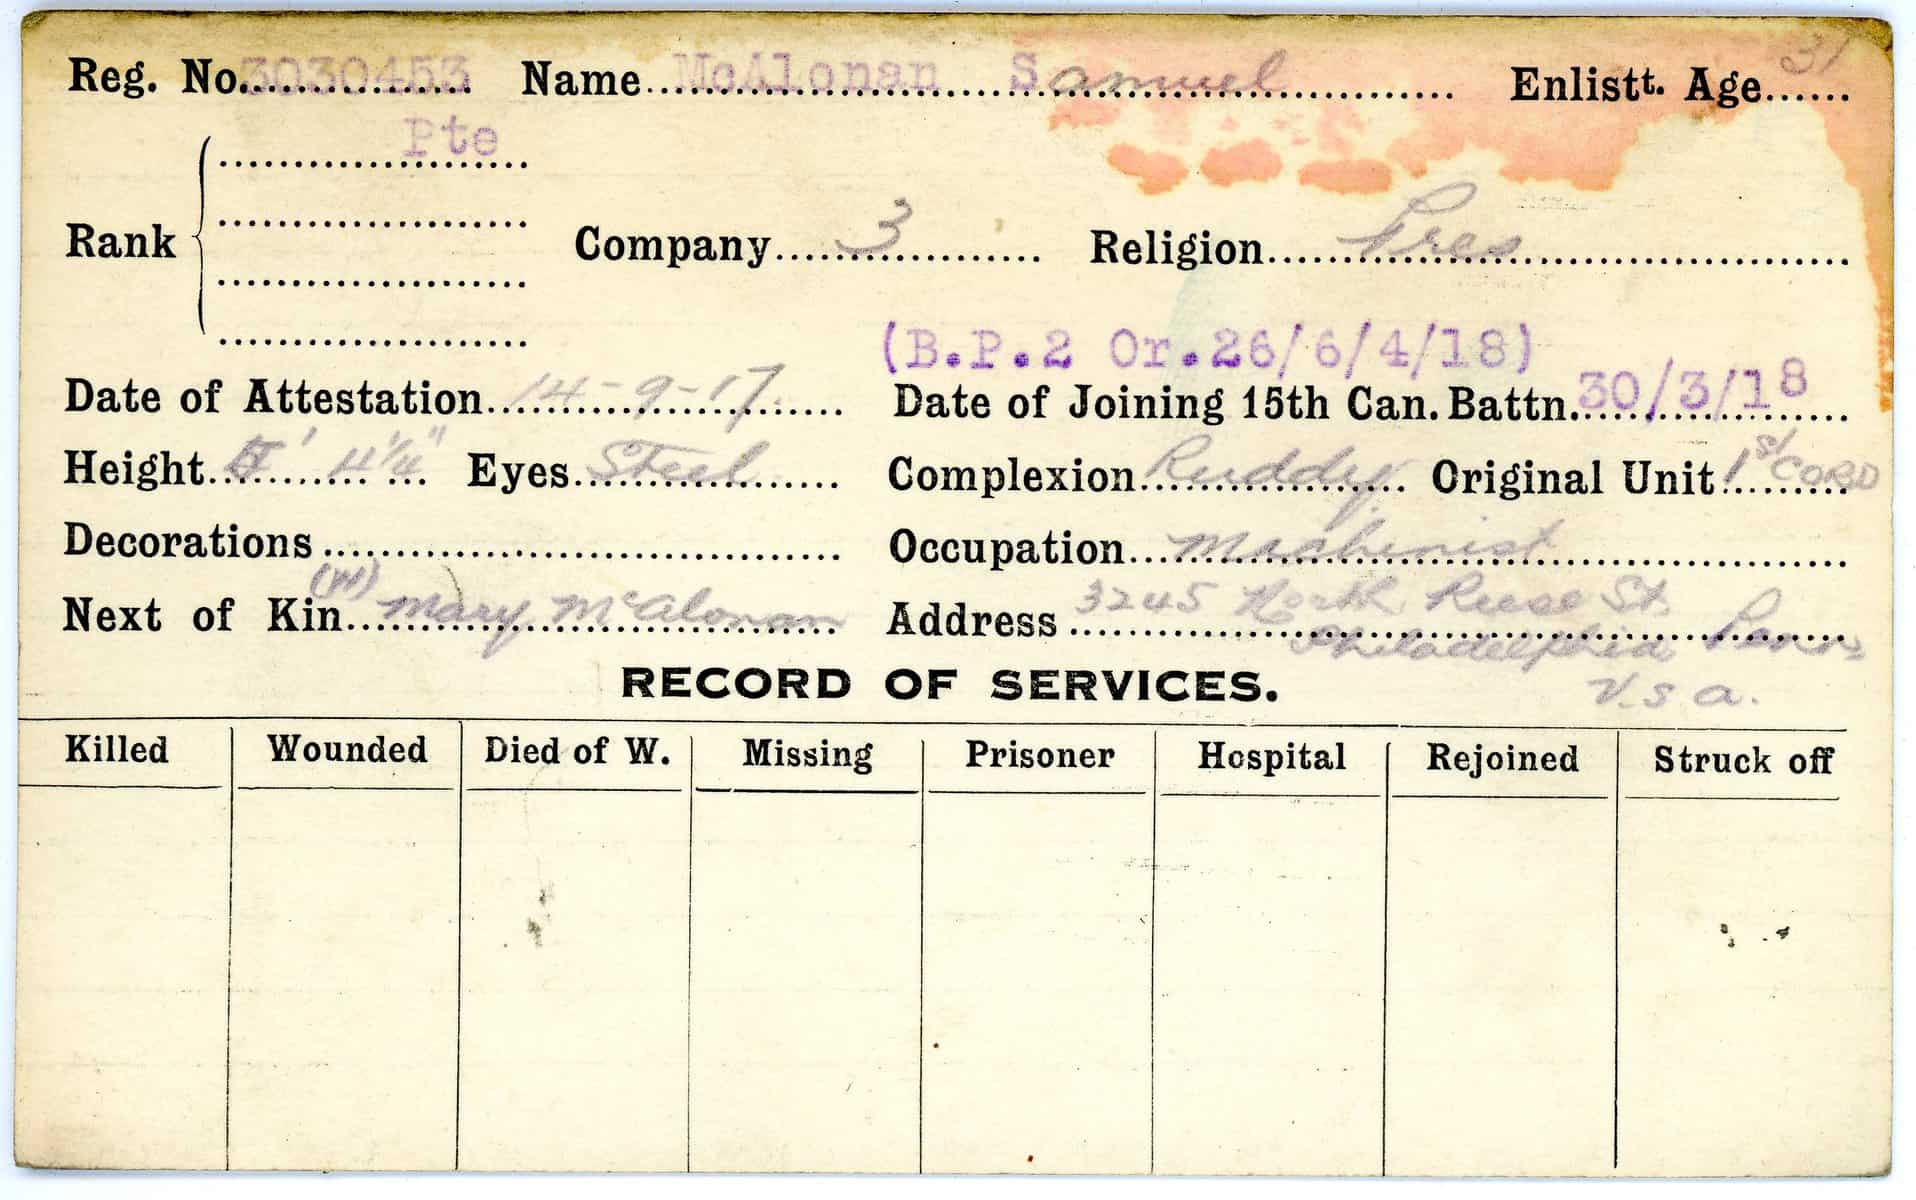 Reg. No. 3030453 Name McAlonan Samuel Enlistt. Age 31
Pte
Rank Company 3 Religion Pres
(B.P.2 Or.26/6/4/18)
Date of Attestation 14-9-17. Date of Joining 15th Can. Battn. 30/3/18
Height 5' 4¼" Eyes Steel Complexion Ruddy Original Unit 1st CORD
Decorations Occupation Machinist
Next of Kin (W) Mary McAlonan Address 3245 North Reese St.
Philadelphia Penn
U.S.A.
RECORD OF SERVICES.
Killed Wounded Died of W. Missing Prisoner Hospital Rejoined Struck off